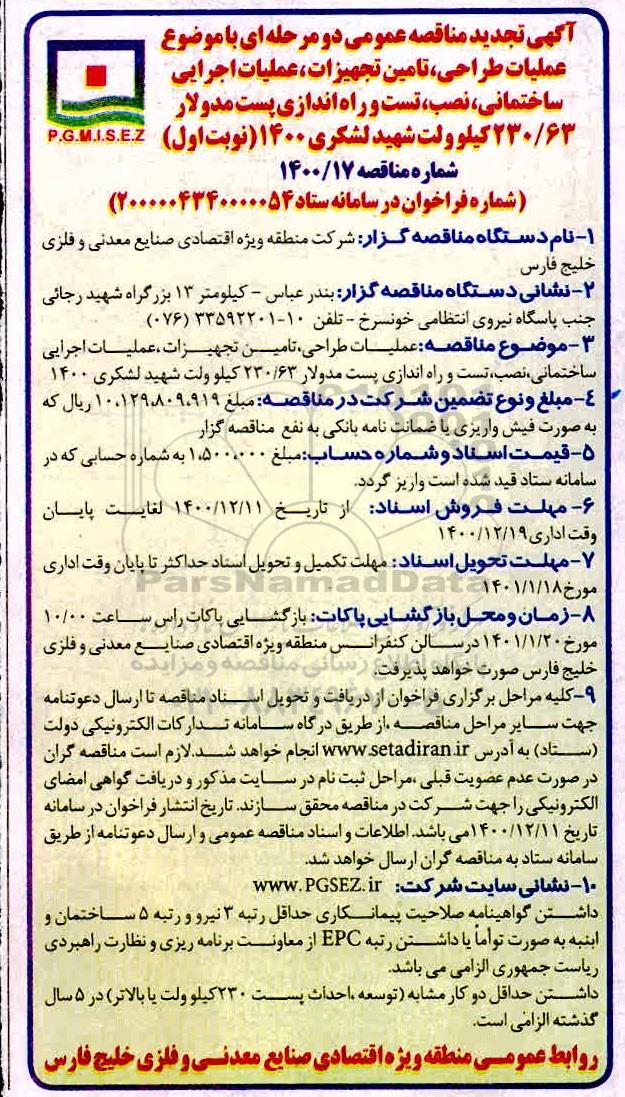 آگهی تجدید مناقصه عمومی دو مرحله ای با موضوع
عملیات طراحی، تامین تجهیزات، عملیات اجرایی
ساختمانی، نصب، تست و راه اندازی پست مدولار
۲۳۰/۶۳ کیلو ولت شهید لشکری ۱۴۰۰ (نوبت اول)
P.G.M.I.S.E.Z
شماره مناقصه ۱۴۰۰/۱۷
(شماره فراخوان در سامانه ستاد ۲۰۰۰۰۰۴۳۴۰۰۰۰۰۵۴)
۱-نام دستگاه مناقصه گزار: شرکت منطقه ویژه اقتصادی صنایع معدنی و فلزی
خلیج فارس
۲-نشانی دستگاه مناقصه گزار: بندر عباس - کیلومتر ۱۳ بزرگراه شهید رجائی
جنب پاسگاه نیروی انتظامی خونسرخ - تلفن ۱۰-۳۳۵۹۲۲۰۱ (۰۷۶)
۳-موضوع مناقصه: عملیات طراحی،تامین تجهیزات ،عملیات اجرایی
ساختمانی،نصب،تست و راه اندازی پست مدولار ۲۳۰/۶۳ کیلو ولت شهید لشکری ۱۴۰۰
۴-مبلغ و نوع تضمین شرکت در مناقصه: مبلغ ۱۰،۱۲۹،۸۰۹،۹۱۹ ریال که
به صورت فیش واریزی یا ضمانت نامه بانکی به نفع مناقصه گزار
۵-قیمت اسناد و شماره حساب: مبلغ ۱،۵۰۰،۰۰۰ به شماره حسابی که در
سامانه ستاد قید شده است واریز گردد.
۶- مهلت فروش اسناد: از تاریخ ۱۴۰۰/۱۲/۱۱ لغایت پایان
وقت اداری ۱۴۰۰/۱۲/۱۹
۷-مهلت تحویل اسناد: مهلت تکمیل و تحویل اسناد حداکثر تا پایان وقت اداری
مورخ ۱۴۰۱/۱/۱۸
ParsNamadData
۸-زمان و محل بازگشایی پاکات: بازگشایی پاکات راس ساعت ۱۰/۰۰
مورخ ۱۴۰۱/۱/۲۰ در سالن کنفرانس منطقه ویژه اقتصادی صنایع معدنی و فلزی
خلیج فارس صورت خواهد پذیرفت.
۹-کلیه مراحل برگزاری فراخوان از دریافت و تحویل اسناد مناقصه تا ارسال دعوتنامه
جهت سایر مراحل مناقصه ،از طریق درگاه سامانه تدارکات الکترونیکی دولت
(ستاد) به آدرس www.setadiran.ir انجام خواهد شد.لازم است مناقصه گران
در صورت عدم عضویت قبلی ،مراحل ثبت نام در سایت مذکور و دریافت گواهی امضای
الکترونیکی را جهت شرکت در مناقصه محقق سازند. تاریخ انتشار فراخوان در سامانه
تاریخ ۱۴۰۰/۱۲/۱۱می باشد. اطلاعات و اسناد مناقصه عمومی و ارسال دعوتنامه از طریق
سامانه ستاد به مناقصه گران ارسال خواهد شد.
۱۰-نشانی سایت شرکت: www.PGSEZ.ir
داشتن گواهینامه صلاحیت پیمانکاری حداقل رتبه ۳ نیرو و رتبه ۵ ساختمان و
ابنیه به صورت توأماً یا داشتن رتبه EPC از معاونت برنامه ریزی و نظارت راهبردی
ریاست جمهوری الزامی می باشد.
داشتن حداقل دو کار مشابه (توسعه ،احداث پست ۲۳۰کیلو ولت یا بالاتر) در ۵ سال
گذشته الزامی است.
روابط عمومی منطقه ویژه اقتصادی صنایع معدنی و فلزی خلیج فارس